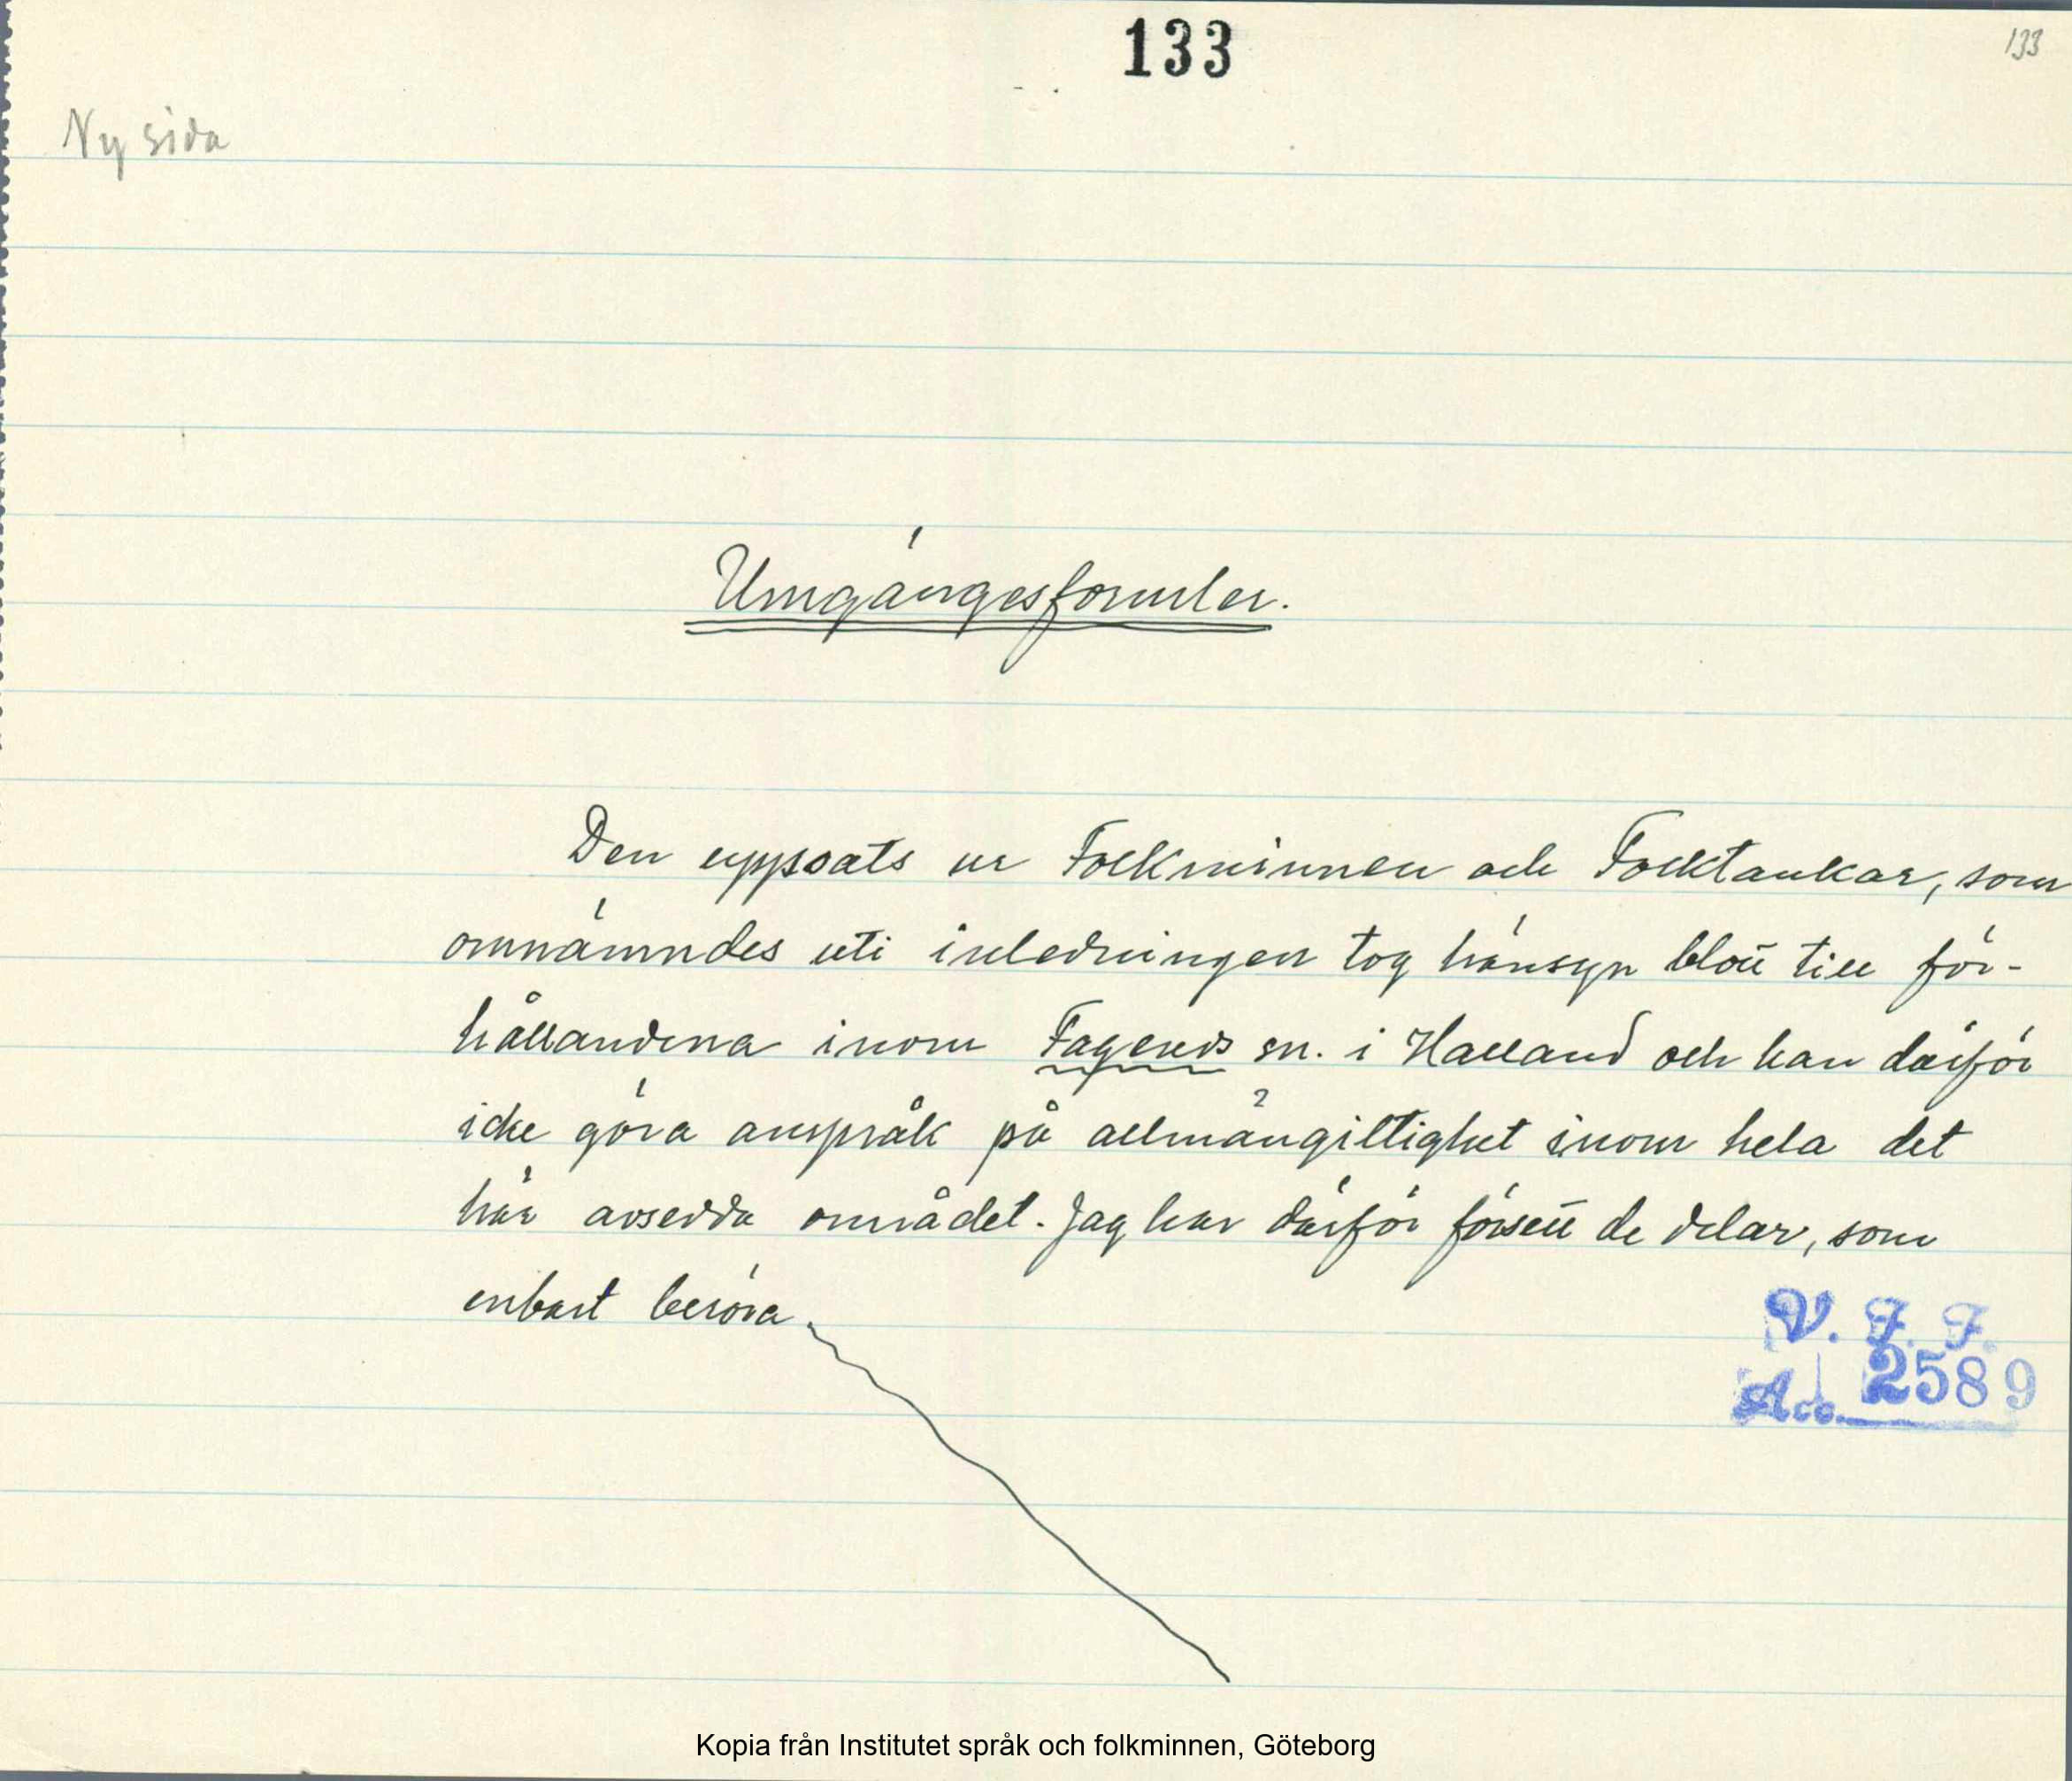 133
133
Ny sida
Umgängesformler.
Den uppsats ur Folkminnen och Folktankar, som
omnämndes uti inledningen tog hänsyn blott till för-
hållandena inom Fagereds sn. i Halland och kan därför
icke göra anspråk på allmängiltighet inom hela det
här avsedda området. Jag har därför försett de delar, som
enbart beröra
V. F. F.
Acc. 2589
Kopia från Institutet språk och folkminnen, Göteborg